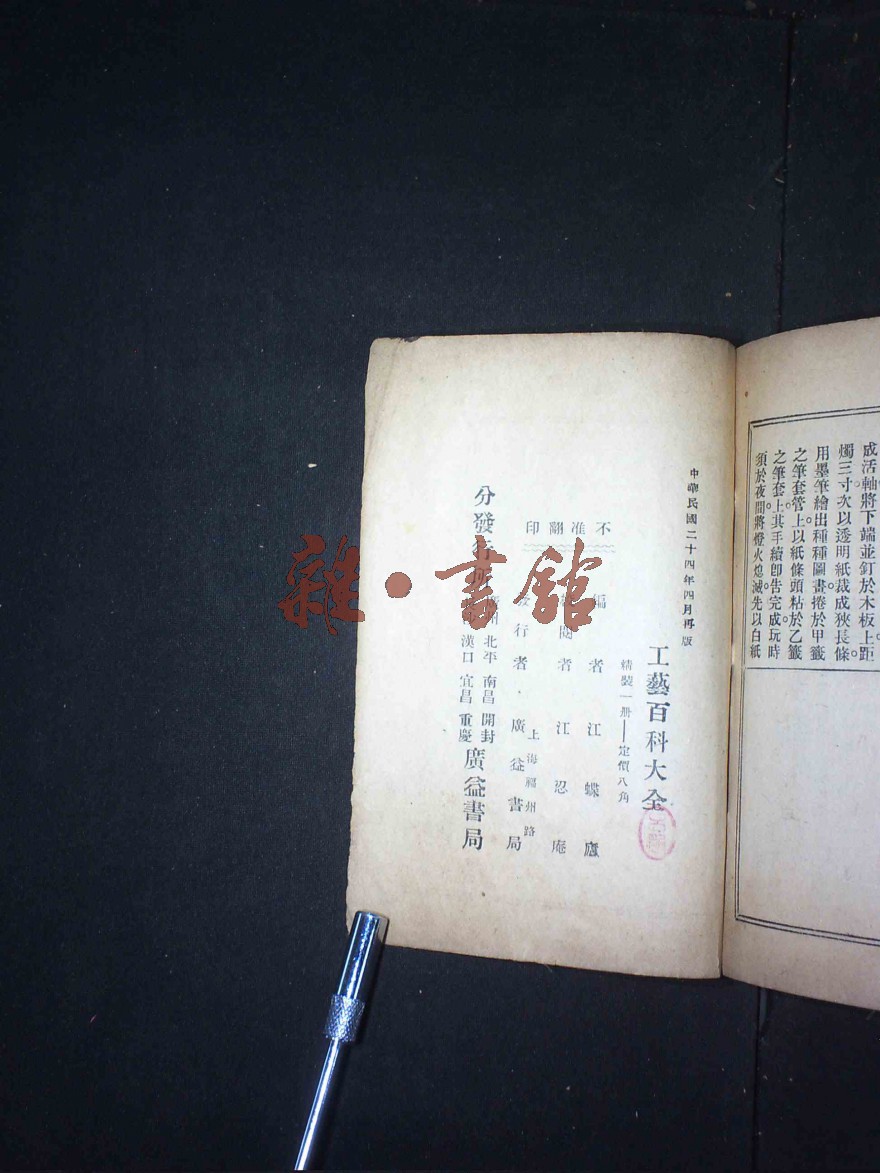 成活軸將下端並釘於木板上距
燭三寸次以透明紙裁成狹長條
用墨筆繪出種種圖畫捲於甲籤
之筆套管上以紙條頭粘於乙籤
之筆套上其手續卽告完成玩時
須於夜間將燈火熄滅先以白紙
中華民國二十四年四月再版
工藝百科大全
精裝一册——定價八角
不准翻印
編者 江蝶廬
閱者 江忍庵
上海福州路
發行者 廣益書局
分發行所
州 北平 南昌 開封
漢口 宜昌 重慶
廣益書局
雜·書館